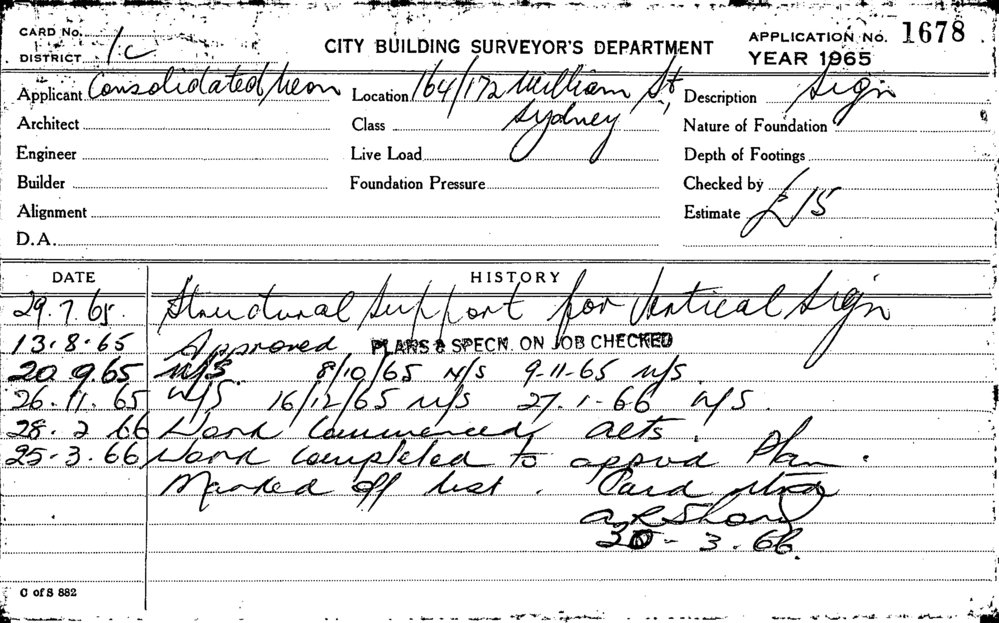 CARD No.
DISTRICT 1c
CITY BUILDING SURVEYOR'S DEPARTMENT
APPLICATION No. 1678
YEAR 1965
Applicant Consolidated Neon
Location 164/172 William St,
Sydney
Description Sign
Architect
Class
Nature of Foundation
Engineer
Live Load
Depth of Footings
Builder
Foundation Pressure
Checked by
Alignment
Estimate £15
D.A.
DATE
HISTORY
29.7.65. Structural Support for Vertical Sign
13.8.65 Approved PLANS & SPECN. ON JOB CHECKED
20.9.65 N/S. 8/10/65 N/S 9-11-65 N/S.
26.11.65 N/S 16/12/65 N/S 27.1-66 N/S.
28.2 66 Work Commenced,
25-3.66 Work completed to approvd Plan.
Marked off list. Card
A R Shand
25-3.66.
C of S 882